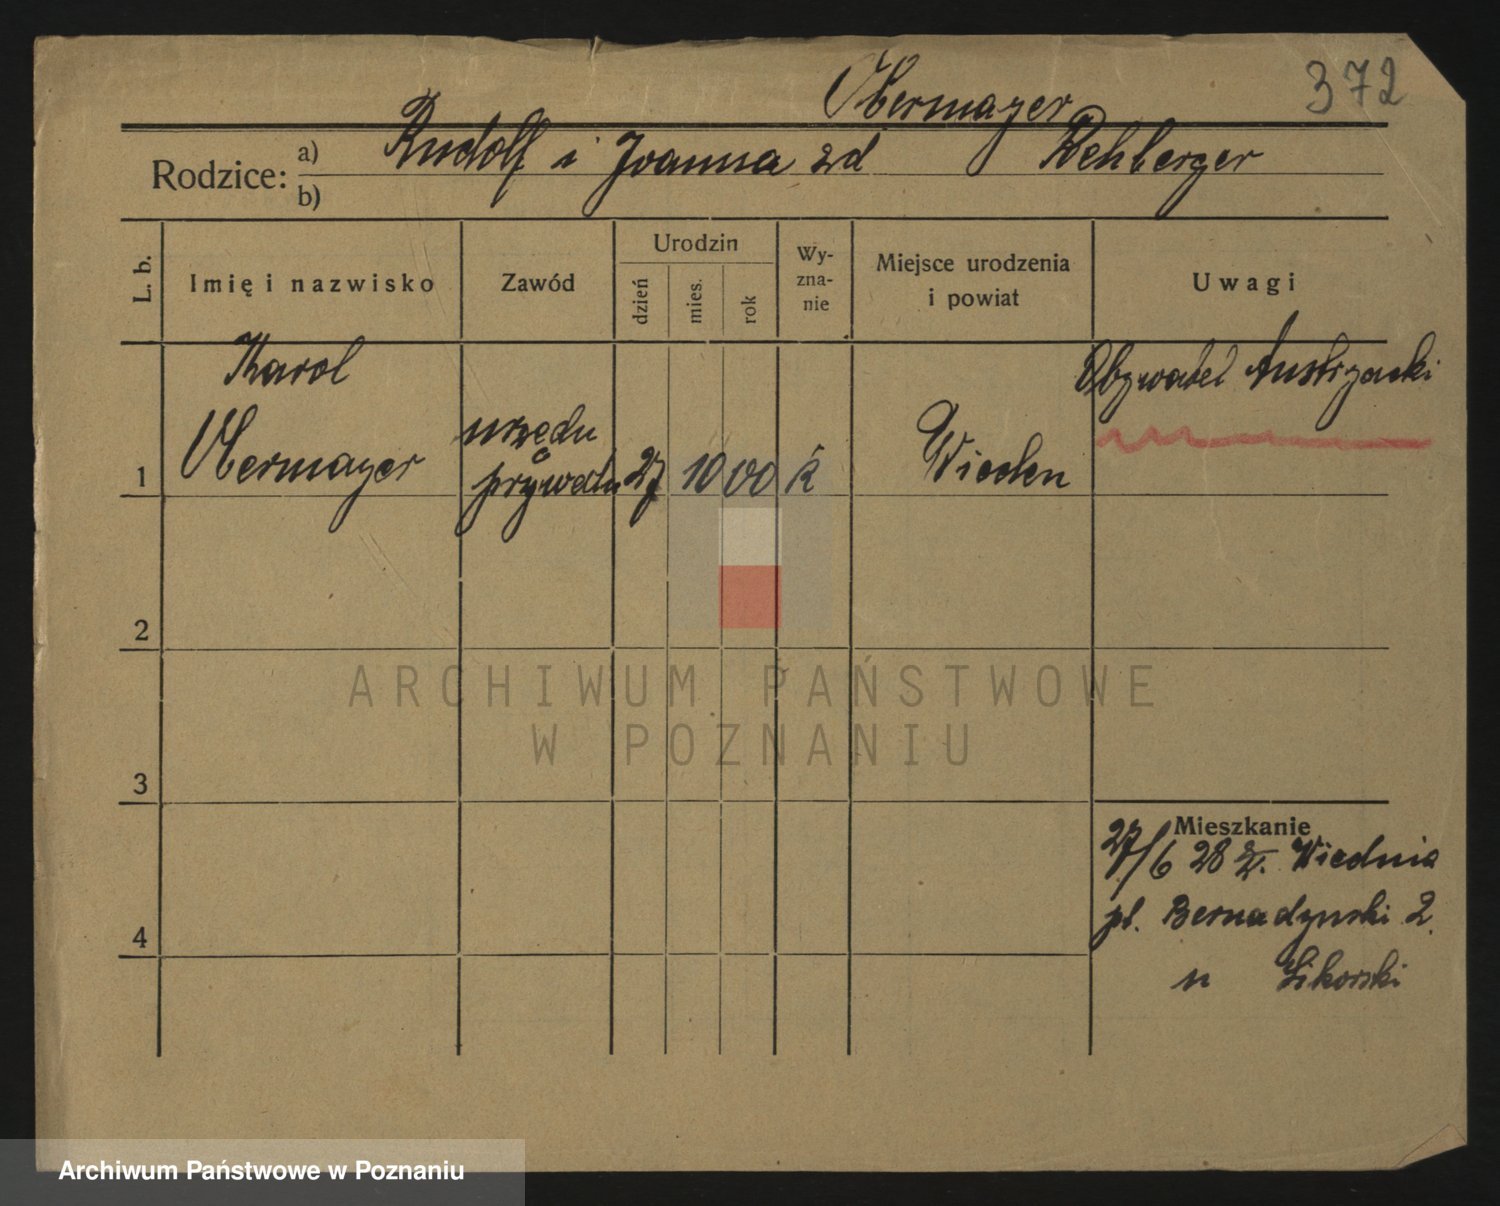 372
Obermayer
Rodzice: a) Rudolf i Joanna zd Rehberger
b)
L. b.
Imię i nazwisko
Zawód
Urodzin
dzień
mies.
rok
Wy-
zna-
nie
Miejsce urodzenia
i powiat
Uwagi
Karol
Obermayer
urzędn
prywatn
27
10
00
k
Wieden
Obywatel Austrzacki
1
2
3
4
Mieszkanie
27/6 28 z Wiednia
pl. Bernadynski 2.
u Sikorski
ARCHIWUM PAŃSTWOWE
W POZNANIU
Archiwum Państwowe w Poznaniu